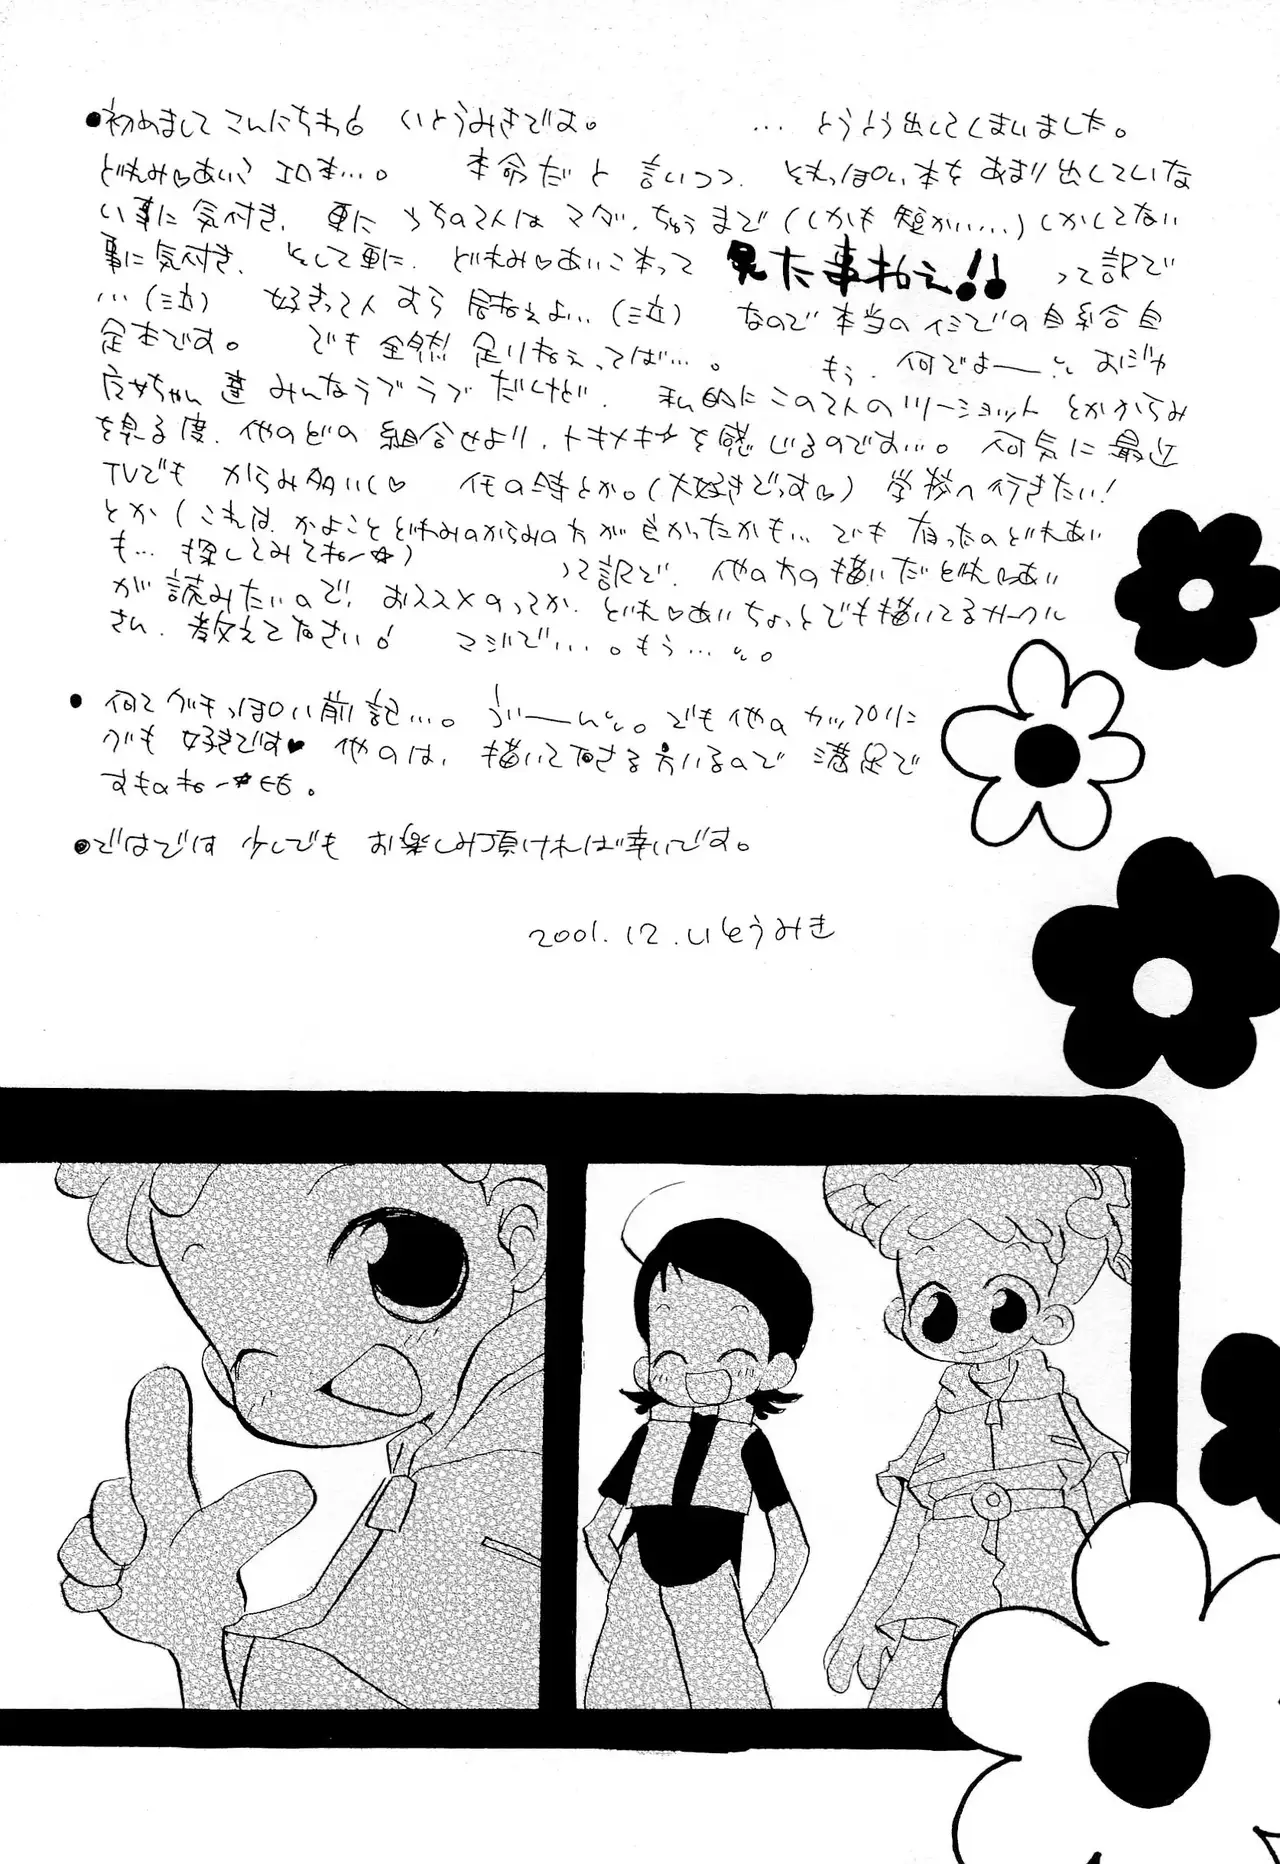 ●初めましてこんにちわ♂ いとうみきです。 …とうとう出してしまいました。
どれみ♡あいこエロ本…。 本命だと言いつつ、それっぽい本をあまり出していな
い事に気付き、更にうちの2人はマダ、ちゅうまで(しかも短かい……)しかしてない
事に気付き、そして更に、どれみ♡あいこ本って 見た事ねえ!! って訳で
…(泣) 好きって人すら居ねえよ…(泣) なので本当のイミでの自給自
足本です。 でも全然足りねえってば…。 もう、何でよー おジャ
魔女ちゃん達みんなラブラブだけど、私的にこの2人のツーショットとかからみ
を見る度、他のどの組合せより、トキメキ☆を感じるのです…。何気に最近
TVでもからみ多いし♡ (大好きでっす♡) 学校へ行きたい!
とか(これは、かよことどれみのからみの方が良かったかも… でも有ったのどれあい
も… 探してみてねー☆) って訳で、他の方の描いたどれ♡あい
が読みたいので! おススメのってか、どれ♡あいちょっとでも描いてるサークル
さん、教えて下さい! マジで…。もう…。
● 何てグチっぽい前記…。 でも他のカップリン
グも好きです♥ 他のは、描いて下さる方いるので満足で
すものねー☆
●ではでは少しでもお楽しみ頂ければ幸いです。
2001.12.いとうみき